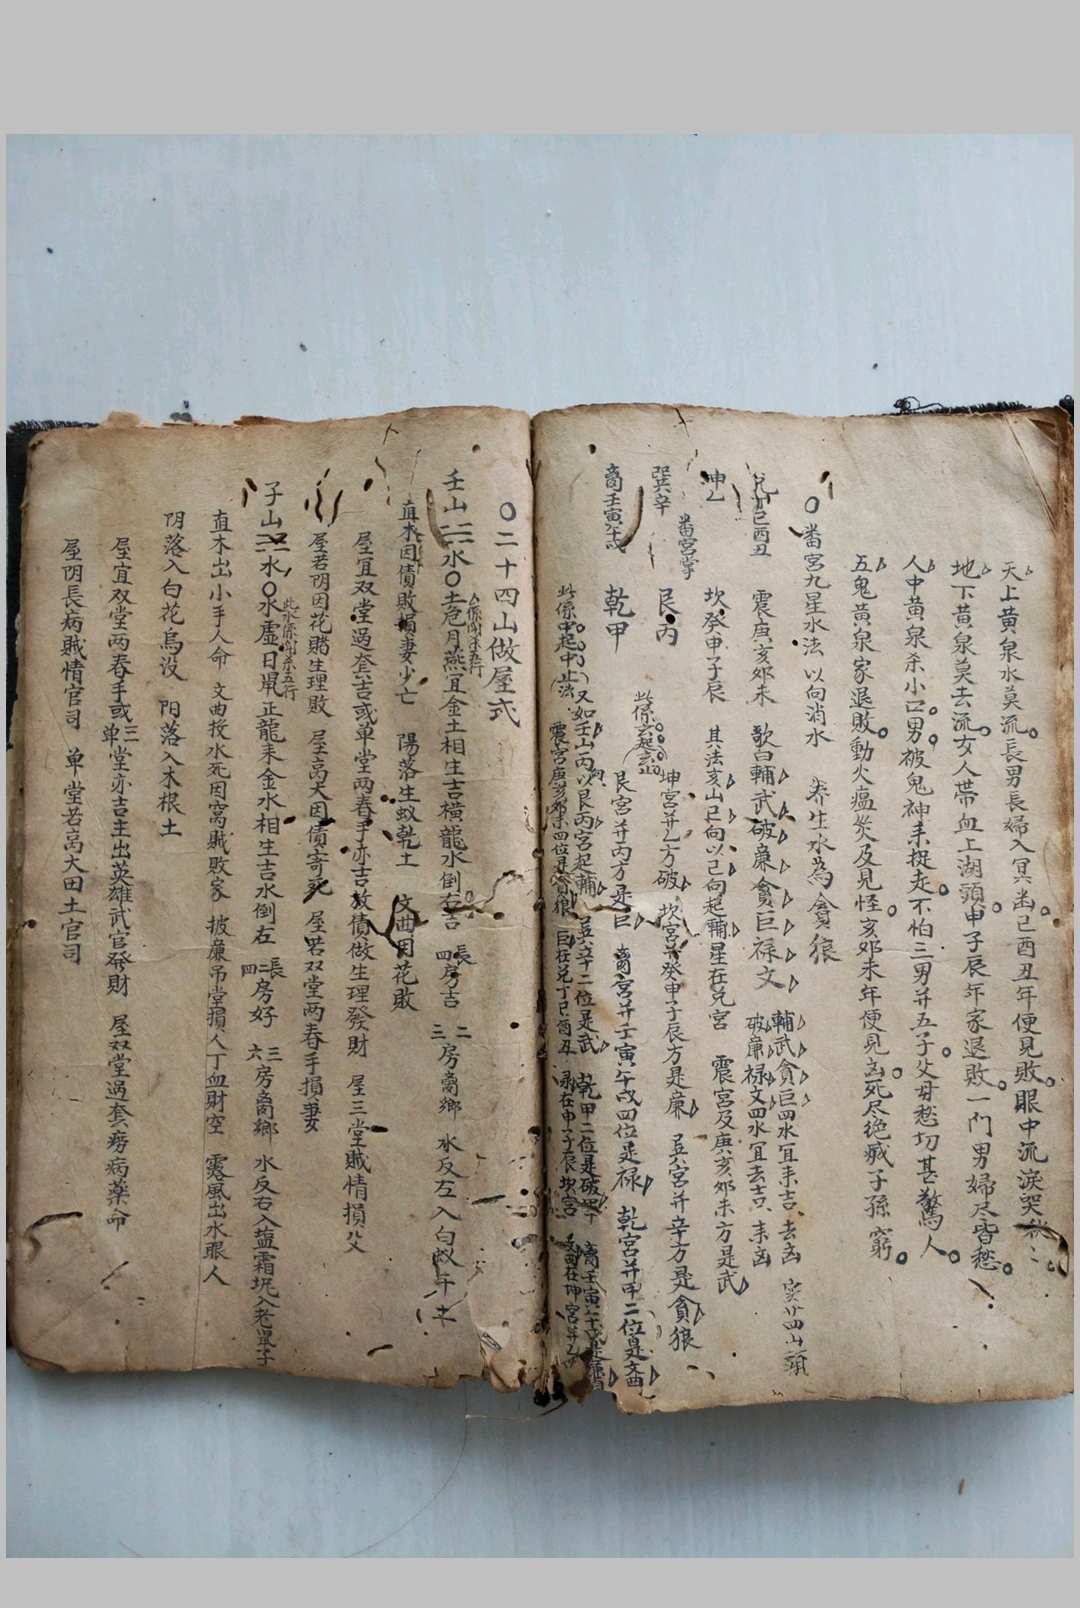 天上黄泉水莫流長男長婦入冥幽巳酉丑年便見敗眼中流淚哭
地下黄泉莫去流女人帶血上湖頭申子辰年家退敗一门男婦尽昏愁
人中黄泉杀小口男被鬼神来捉走不怕三男并五子父母愁切甚驚人
五鬼黄泉家退敗動火瘟災及見怪亥卯未年便見凶死尽绝滅子孫窮
〇番宮九星水法 以向消水 养生水為貪狼
輔武貪巨四水宜来吉去凶 實廿四山頭
兌丁巳酉丑 震庚亥卯未 歌曰輔武破廉貪巨禄文 破廉禄文四水宜去吉来凶
坤乙 坎癸申子辰 其法亥山巳向以巳向起輔星在兌宮 震宮及庚亥卯未方是武
番宮掌
巽辛 艮丙 坤宮并乙方破 坎宮并癸申子辰方是廉 巽宮并辛方是貪狼
此係玄起玄止
离壬寅午戌 乾甲 艮宮并丙方是巨 离宮并壬寅午戌四位是禄 乾宮并甲二位是文曲
此係中起中止法 又如壬山丙以艮丙宮起輔 巽辛二位是武 乾甲二位是破 离壬寅午戌是廉
震宮庚亥卯未四位是貪狼 巨在兌丁巳酉丑 禄在申子辰坎宮 文曲在坤宮并乙
〇二十四山做屋式
壬山 水〇土危月燕宜金土相生吉橫龍水倒右吉 長四房吉 二三房离鄉 水反左入白蚁午土
直木因債敗損妻少亡 陽落生蚁乾土 文曲因花敗
屋宜双堂過套吉或单堂两春手亦吉放債做生理發財 屋三堂賊情損父
屋若阴因花賭生理敗 屋高大因債寄死 屋若双堂两春手損妻
子山 水〇水虛日鼠正龍来金水相生吉水倒左 長二四房好 三六房离鄉 水反右入塩霜坭入老鼠子
直木出小手人命 文曲投水死因窝賊敗家 披廉吊堂損人丁血財空 露風出水眼人
阴落入白花烏没 阳落入木根土
屋宜双堂两春手或单三堂亦吉主出英雄武官發財 屋双堂過套痨病藥命
屋阴長病賊情官司 单堂若高大田土官司